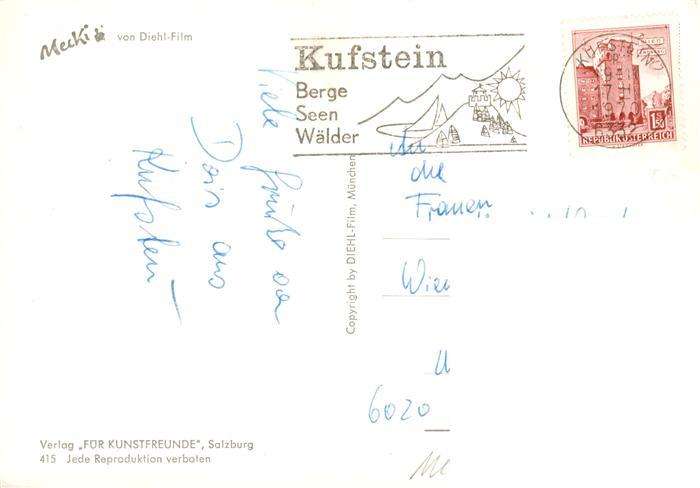 Mecki
von Diehl-Film
Kufstein
Berge
Seen
Wälder
KUFSTEIN
1.50
REPUBLIK ÖSTERREICH
Viele
Grüße
aus
Kufstein
Copyright by DIEHL-Film, München
An
die
Frauen
Wien
6020
Verlag „FÜR KUNSTFREUNDE", Salzburg
415 Jede Reproduktion verboten